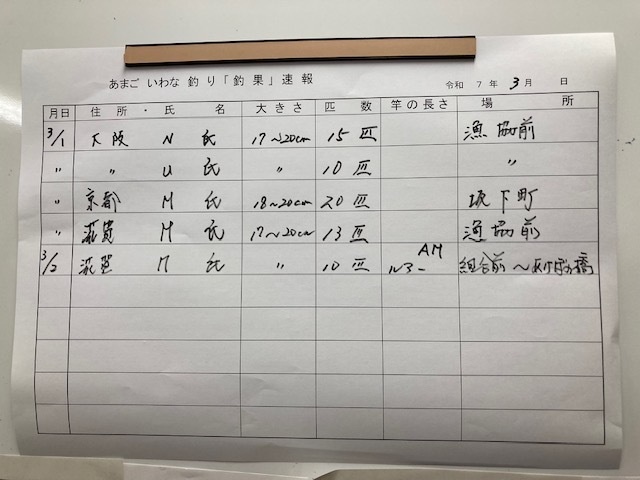 あまご いわな 釣り「釣果」速報 令和 7 年 3 月 日
月日 住所・氏名 大きさ 匹数 竿の長さ 場所
3/1 大阪 N 氏 17〜20cm 15 匹 漁協前
〃 〃 U 氏 〃 10 匹 〃
〃 京都 M 氏 18〜20cm 20 匹 坂下町
〃 滋賀 M 氏 17〜20cm 13 匹 漁協前
3/2 滋賀 M 氏 〃 10 匹 AM 組合前〜あけぼの橋